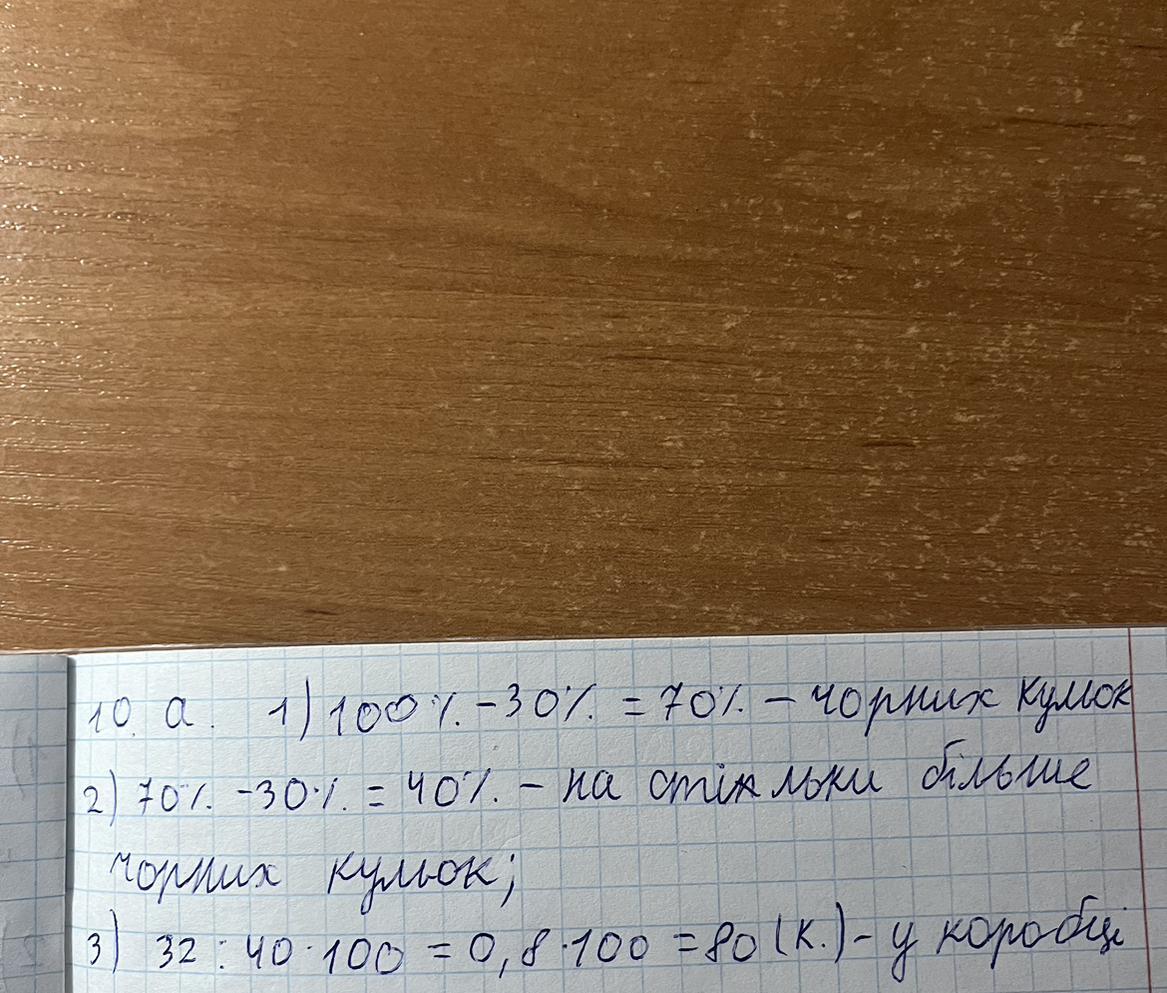 10. а. 1) 100% - 30% = 70% - чорних кульок
2) 70% - 30% = 40% - на стільки більше
чорних кульок;
3) 32 : 40 · 100 = 0,8 · 100 = 80 (к.) - у коробці